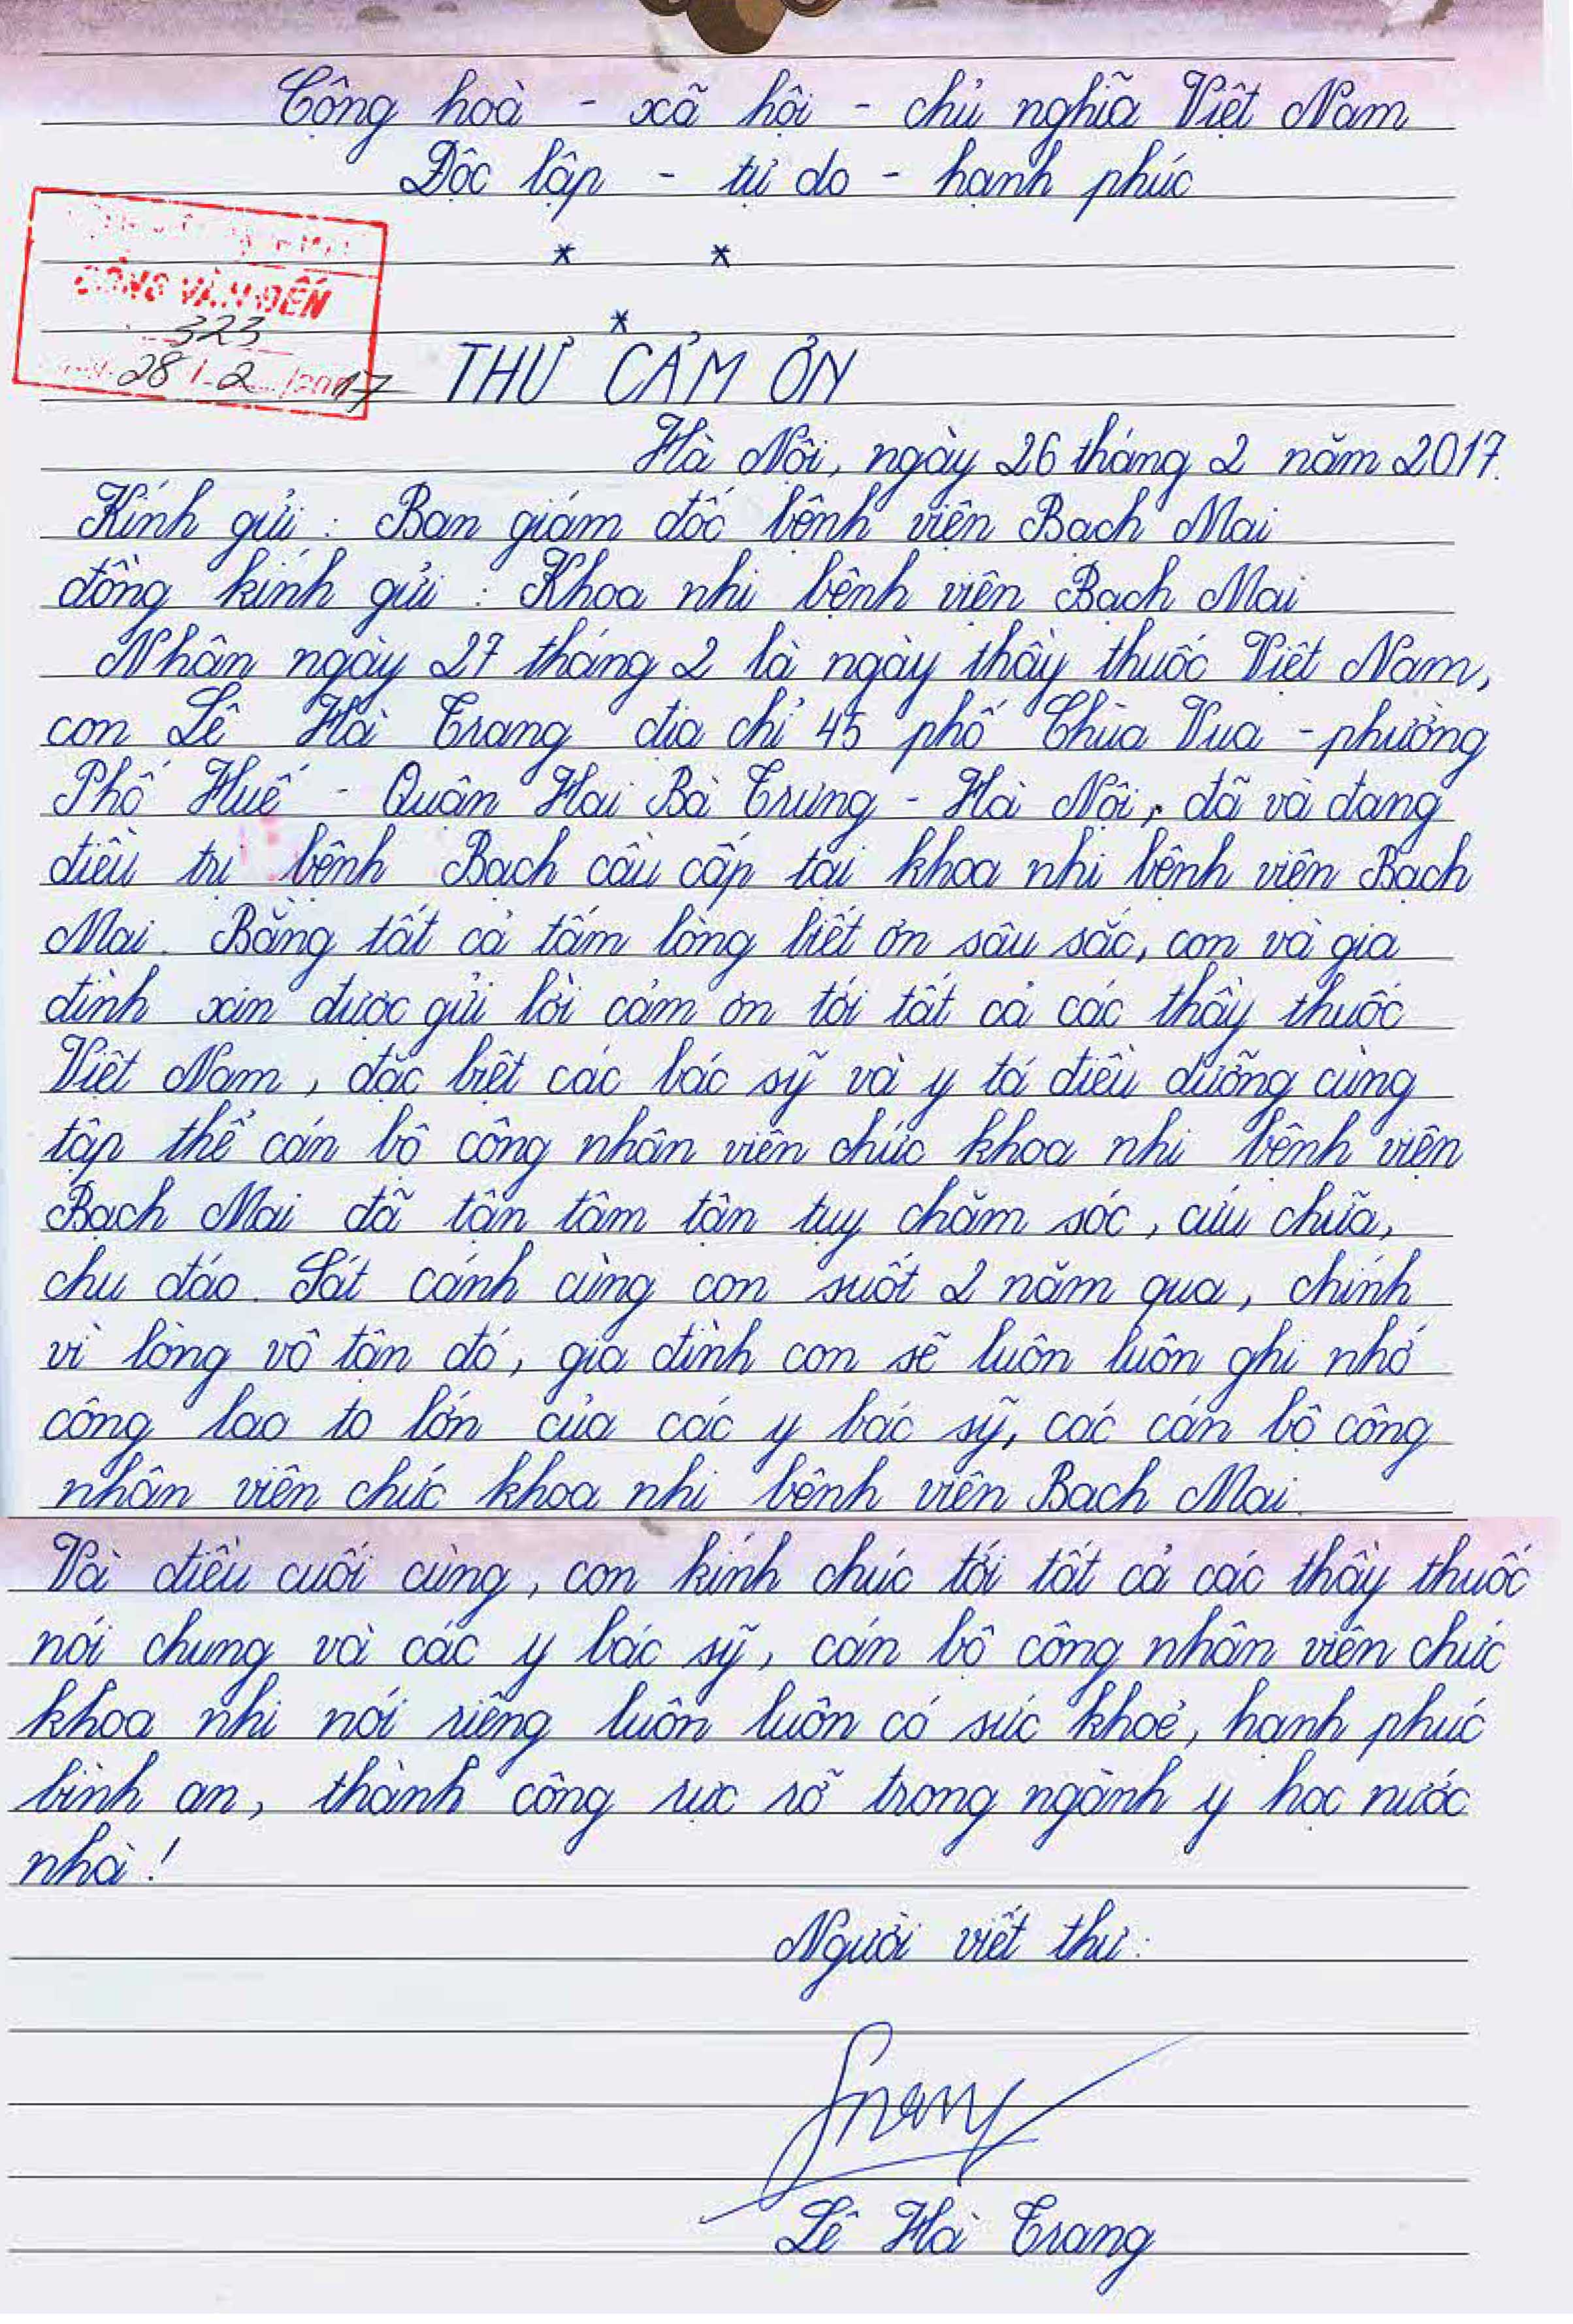 Cộng hoà - xã hội - chủ nghĩa Việt Nam
Độc lập - tự do - hạnh phúc
* *
*
CÔNG VĂN ĐẾN
323
28 / 2 /2017
THƯ CẢM ƠN
Hà Nội, ngày 26 tháng 2 năm 2017.
Kính gửi : Ban giám đốc bệnh viện Bạch Mai
đồng kính gửi : Khoa nhi bệnh viện Bạch Mai
Nhân ngày 27 tháng 2 là ngày thầy thuốc Việt Nam,
con Lê Hà Trang địa chỉ 45 phố Chùa Vua - phường
Phố Huế - Quận Hai Bà Trưng - Hà Nội, đã và đang
điều trị bệnh Bạch cầu cấp tại khoa nhi bệnh viện Bạch
Mai. Bằng tất cả tấm lòng biết ơn sâu sắc, con và gia
đình xin được gửi lời cảm ơn tới tất cả các thầy thuốc
Việt Nam, đặc biệt các bác sỹ và y tá điều dưỡng cùng
tập thể cán bộ công nhân viên chức khoa nhi bệnh viện
Bạch Mai đã tận tâm tận tụy chăm sóc, cứu chữa,
chu đáo. Sát cánh cùng con suốt 2 năm qua, chính
vì lòng vô tận đó, gia đình con sẽ luôn luôn ghi nhớ
công lao to lớn của các y bác sỹ, các cán bộ công
nhân viên chức khoa nhi bệnh viện Bạch Mai.
Và điều cuối cùng, con kính chúc tới tất cả các thầy thuốc
nói chung và các y bác sỹ, cán bộ công nhân viên chức
khoa nhi nói riêng luôn luôn có sức khoẻ, hạnh phúc
bình an, thành công rực rỡ trong ngành y học nước
nhà!
Người viết thư:
Lê Hà Trang